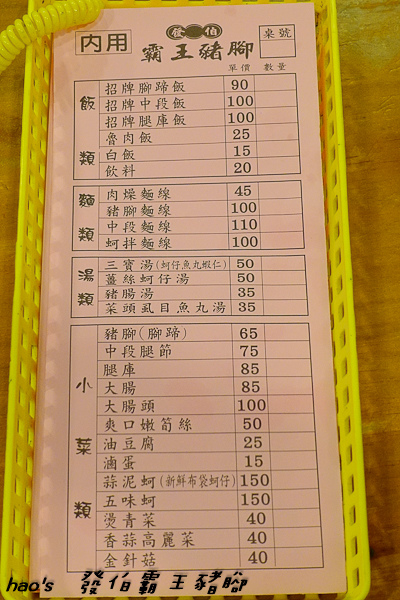 內用
發 伯
霸王豬腳
桌號
單價 數量
飯類
招牌腳蹄飯 90
招牌中段飯 100
招牌腿庫飯 100
魯肉飯 25
白飯 15
飲料 20
麵類
肉燥麵線 45
豬腳麵線 100
中段麵線 110
蚵拌麵線 100
湯類
三寶湯(蚵仔魚丸蝦仁) 50
薑絲蚵仔湯 50
豬腸湯 35
菜頭虱目魚丸湯 35
小菜類
豬腳(腳蹄) 65
中段腿節 75
腿庫 85
大腸 85
大腸頭 100
爽口嫩筍絲 50
油豆腐 25
滷蛋 15
蒜泥蚵(新鮮布袋蚵仔) 150
五味蚵 150
燙青菜 40
香蒜高麗菜 40
金針菇 40
hao's 發伯霸王豬腳